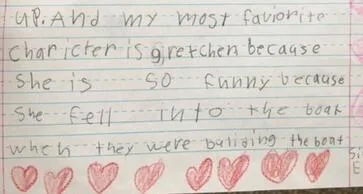 up. And my most faviorite
character is gretchen because
She is so funny because
She fell into the boat
when they were buliding the boat